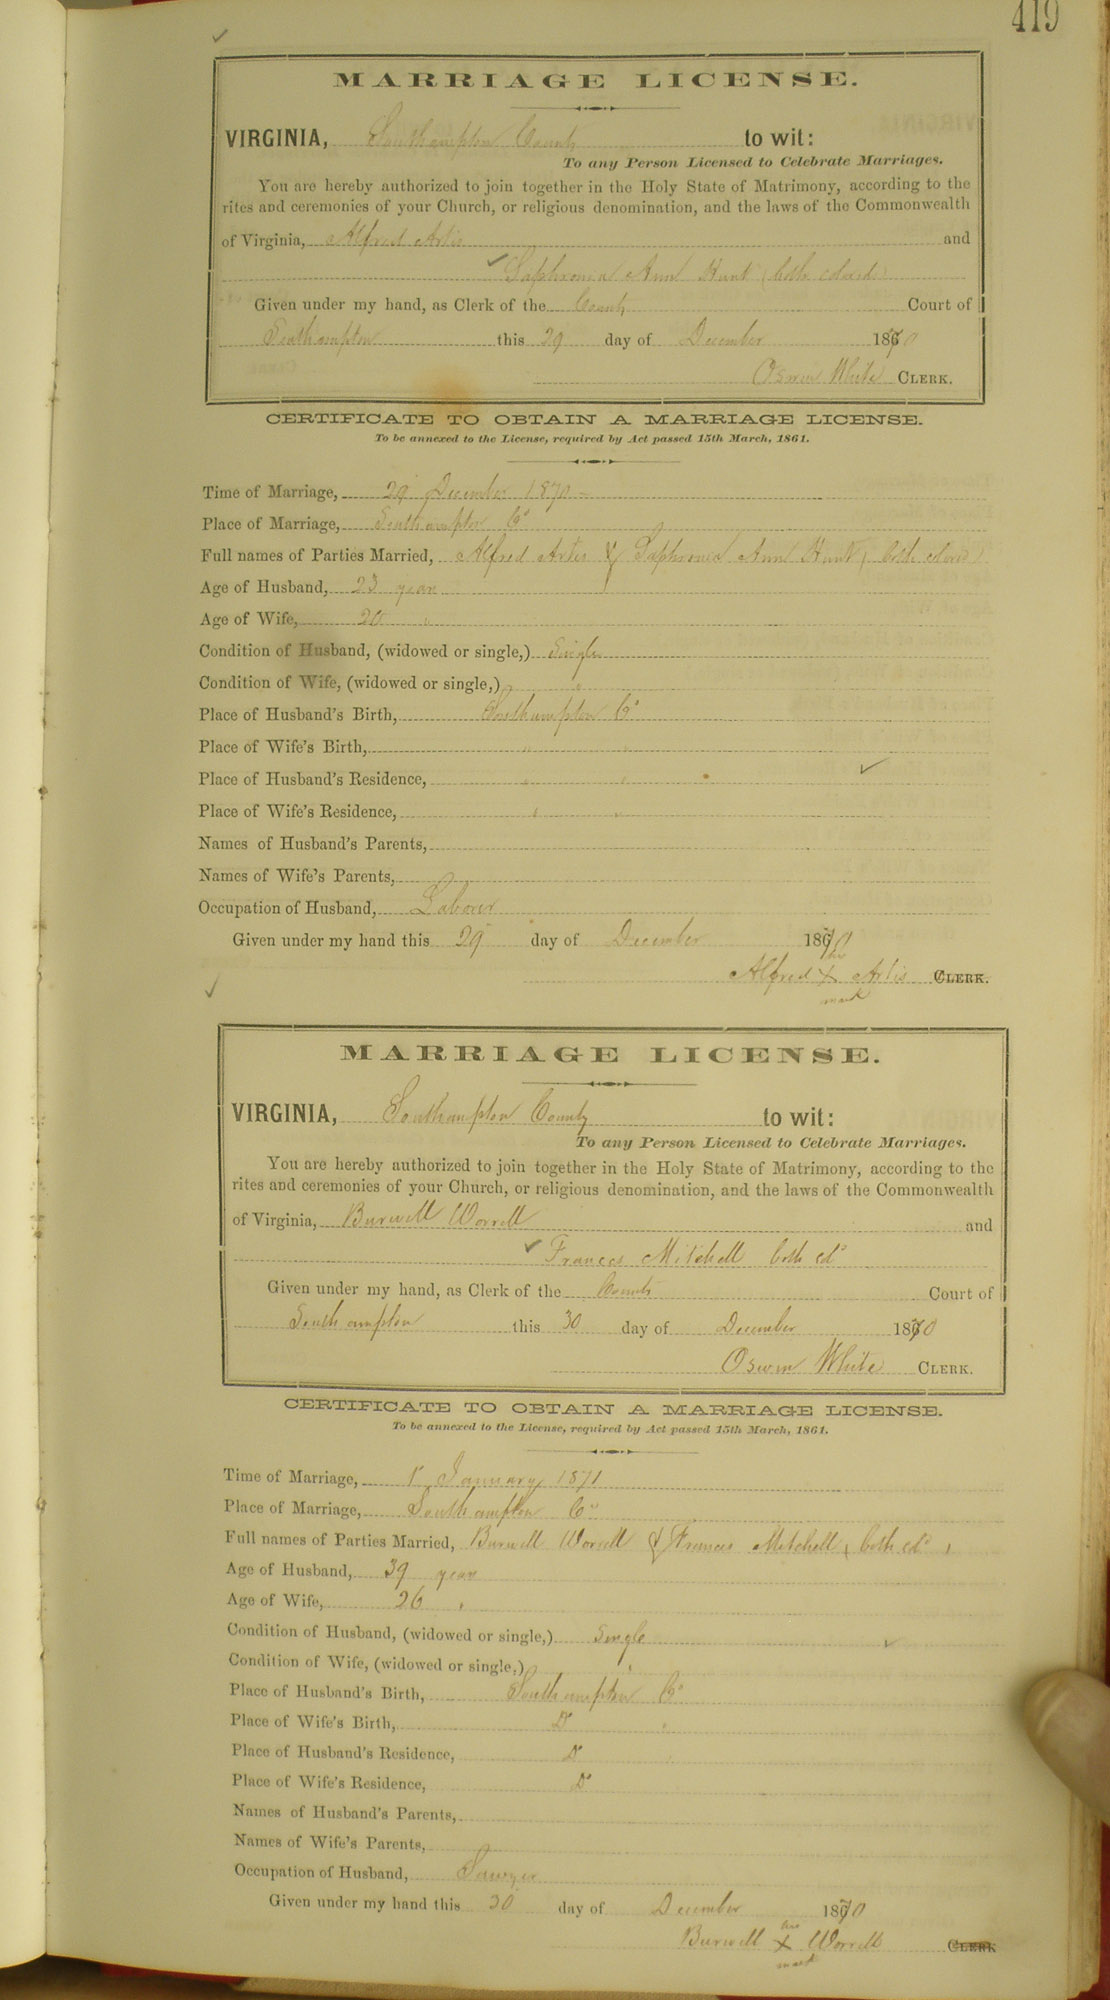 419
MARRIAGE LICENSE.
VIRGINIA, Southampton County to wit:
To any Person Licensed to Celebrate Marriages.
You are hereby authorized to join together in the Holy State of Matrimony, according to the
rites and ceremonies of your Church, or religious denomination, and the laws of the Commonwealth
of Virginia, Alfred Artis and
Saphronia Ann Hunt (both colored)
Given under my hand, as Clerk of the County Court of
Southampton this 29 day of December 1870
Oswin White CLERK.
CERTIFICATE TO OBTAIN A MARRIAGE LICENSE.
To be annexed to the License, required by Act passed 15th March, 1861.
Time of Marriage, 29 December 1870
Place of Marriage, Southampton Co
Full names of Parties Married, Alfred Artis & Saphronia Ann Hunt (both colored)
Age of Husband, 23 years
Age of Wife, 20 "
Condition of Husband, (widowed or single,) Single
Condition of Wife, (widowed or single,) "
Place of Husband's Birth, Southampton Co
Place of Wife's Birth, " "
Place of Husband's Residence, " "
Place of Wife's Residence, " "
Names of Husband's Parents,
Names of Wife's Parents,
Occupation of Husband, Laborer
Given under my hand this 29 day of December 1870
his
Alfred X Artis CLERK.
mark
MARRIAGE LICENSE.
VIRGINIA, Southampton County to wit:
To any Person Licensed to Celebrate Marriages.
You are hereby authorized to join together in the Holy State of Matrimony, according to the
rites and ceremonies of your Church, or religious denomination, and the laws of the Commonwealth
of Virginia, Burwell Worrell and
Frances Mitchell both cd
Given under my hand, as Clerk of the County Court of
Southampton this 30 day of December 1870
Oswin White CLERK.
CERTIFICATE TO OBTAIN A MARRIAGE LICENSE.
To be annexed to the License, required by Act passed 15th March, 1861.
Time of Marriage, 1st January 1871
Place of Marriage, Southampton Co
Full names of Parties Married, Burwell Worrell & Frances Mitchell (both cd)
Age of Husband, 39 years
Age of Wife, 26 "
Condition of Husband, (widowed or single,) Single
Condition of Wife, (widowed or single,) "
Place of Husband's Birth, Southampton Co
Place of Wife's Birth, Do "
Place of Husband's Residence, Do
Place of Wife's Residence, Do
Names of Husband's Parents,
Names of Wife's Parents,
Occupation of Husband, Sawyer
Given under my hand this 30 day of December 1870
his
Burwell X Worrell CLERK
mark